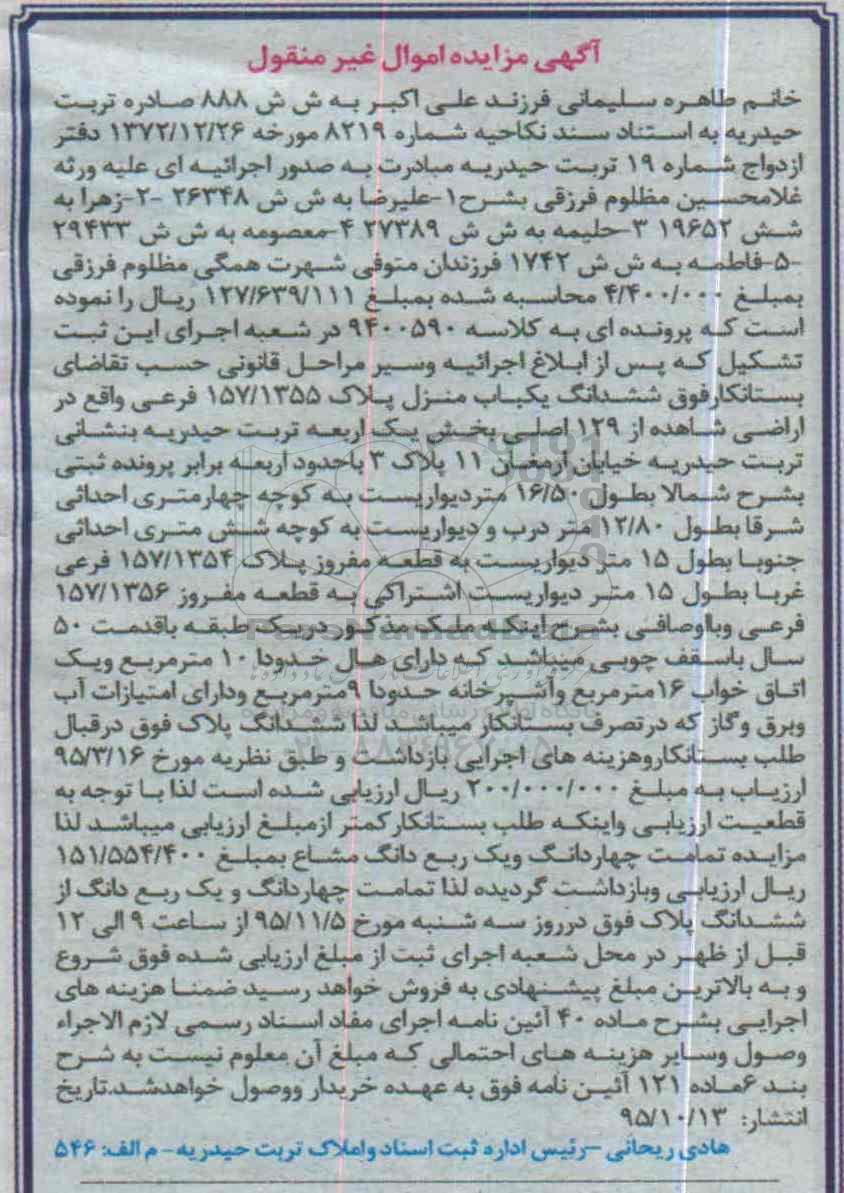 آگهی مزایده اموال غیر منقول
خانم طاهره سلیمانی فرزند علی اکبر به ش ش ۸۸۸ صادره تربت
حیدریه به استناد سند نکاحیه شماره ۸۲۱۹ مورخه ۱۳۷۲/۱۲/۲۶ دفتر
ازدواج شماره ۱۹ تربت حیدریه مبادرت به صدور اجرائیه ای علیه ورثه
غلامحسین مظلوم فرزقی بشرح۱-علیرضا به ش ش ۲۶۳۴۸ -۲-زهرا به
شش ۱۹۶۵۲ ۳-حلیمه به ش ش ۲۷۳۸۹ ۴-معصومه به ش ش ۲۹۴۳۳
-۵-فاطمه به ش ش ۱۷۴۲ فرزندان متوفی شهرت همگی مظلوم فرزقی
بمبلغ ۴/۴۰۰/۰۰۰ محاسبه شده بمبلغ ۱۲۷/۶۳۹/۱۱۱ ریال را نموده
است که پرونده ای به کلاسه ۹۴۰۰۵۹۰ در شعبه اجرای این ثبت
تشکیل که پس از ابلاغ اجرائیه وسیر مراحل قانونی حسب تقاضای
بستانکارفوق ششدانگ یکباب منزل پلاک ۱۵۷/۱۳۵۵ فرعی واقع در
اراضی شاهده از ۱۲۹ اصلی بخش یک اربعه تربت حیدریه بنشانی
تربت حیدریه خیابان ارمغان ۱۱ پلاک ۳ باحدود اربعه برابر پرونده ثبتی
بشرح شمالا بطول ۱۶/۵۰ متردیواریست به کوچه چهارمتری احداثی
شرقا بطول ۱۲/۸۰ متر درب و دیواریست به کوچه شش متری احداثی
جنوبا بطول ۱۵ متر دیواریست به قطعه مفروز پلاک ۱۵۷/۱۳۵۴ فرعی
غربا بطول ۱۵ متر دیواریست اشتراکی به قطعه مفروز ۱۵۷/۱۳۵۶
فرعی وبااوصافی بشرح اینکه ملک مذکور دریک طبقه باقدمت ۵۰
سال باسقف چوبی میباشد که دارای هال حدودا ۱۰ مترمربع ویک
اتاق خواب ۱۶مترمربع وآشپرخانه حدودا ۹مترمربع ودارای امتیازات آب
وبرق وگاز که درتصرف بستانکار میباشد لذا ششدانگ پلاک فوق درقبال
طلب بستانکاروهزینه های اجرایی بازداشت و طبق نظریه مورخ ۹۵/۳/۱۶
ارزیاب به مبلغ ۲۰۰/۰۰۰/۰۰۰ ریال ارزیابی شده است لذا با توجه به
قطعیت ارزیابی واینکه طلب بستانکار کمتر ازمبلغ ارزیابی میباشد لذا
مزایده تمامت چهاردانگ ویک ربع دانگ مشاع بمبلغ ۱۵۱/۵۵۴/۴۰۰
ریال ارزیابی وبازداشت گردیده لذا تمامت چهاردانگ و یک ربع دانگ از
ششدانگ پلاک فوق درروز سه شنبه مورخ ۹۵/۱۱/۵ از ساعت ۹ الی ۱۲
قبل از ظهر در محل شعبه اجرای ثبت از مبلغ ارزیابی شده فوق شروع
و به بالاترین مبلغ پیشنهادی به فروش خواهد رسید ضمنا هزینه های
اجرایی بشرح ماده ۴۰ آئین نامه اجرای مفاد اسناد رسمی لازم الاجراء
وصول وسایر هزینه های احتمالی که مبلغ آن معلوم نیست به شرح
بند ۶ماده ۱۲۱ آئین نامه فوق به عهده خریدار ووصول خواهدشد.تاریخ
انتشار: ۹۵/۱۰/۱۳
هادی ریحانی –رئیس اداره ثبت اسناد واملاک تربت حیدریه- م الف: ۵۴۶